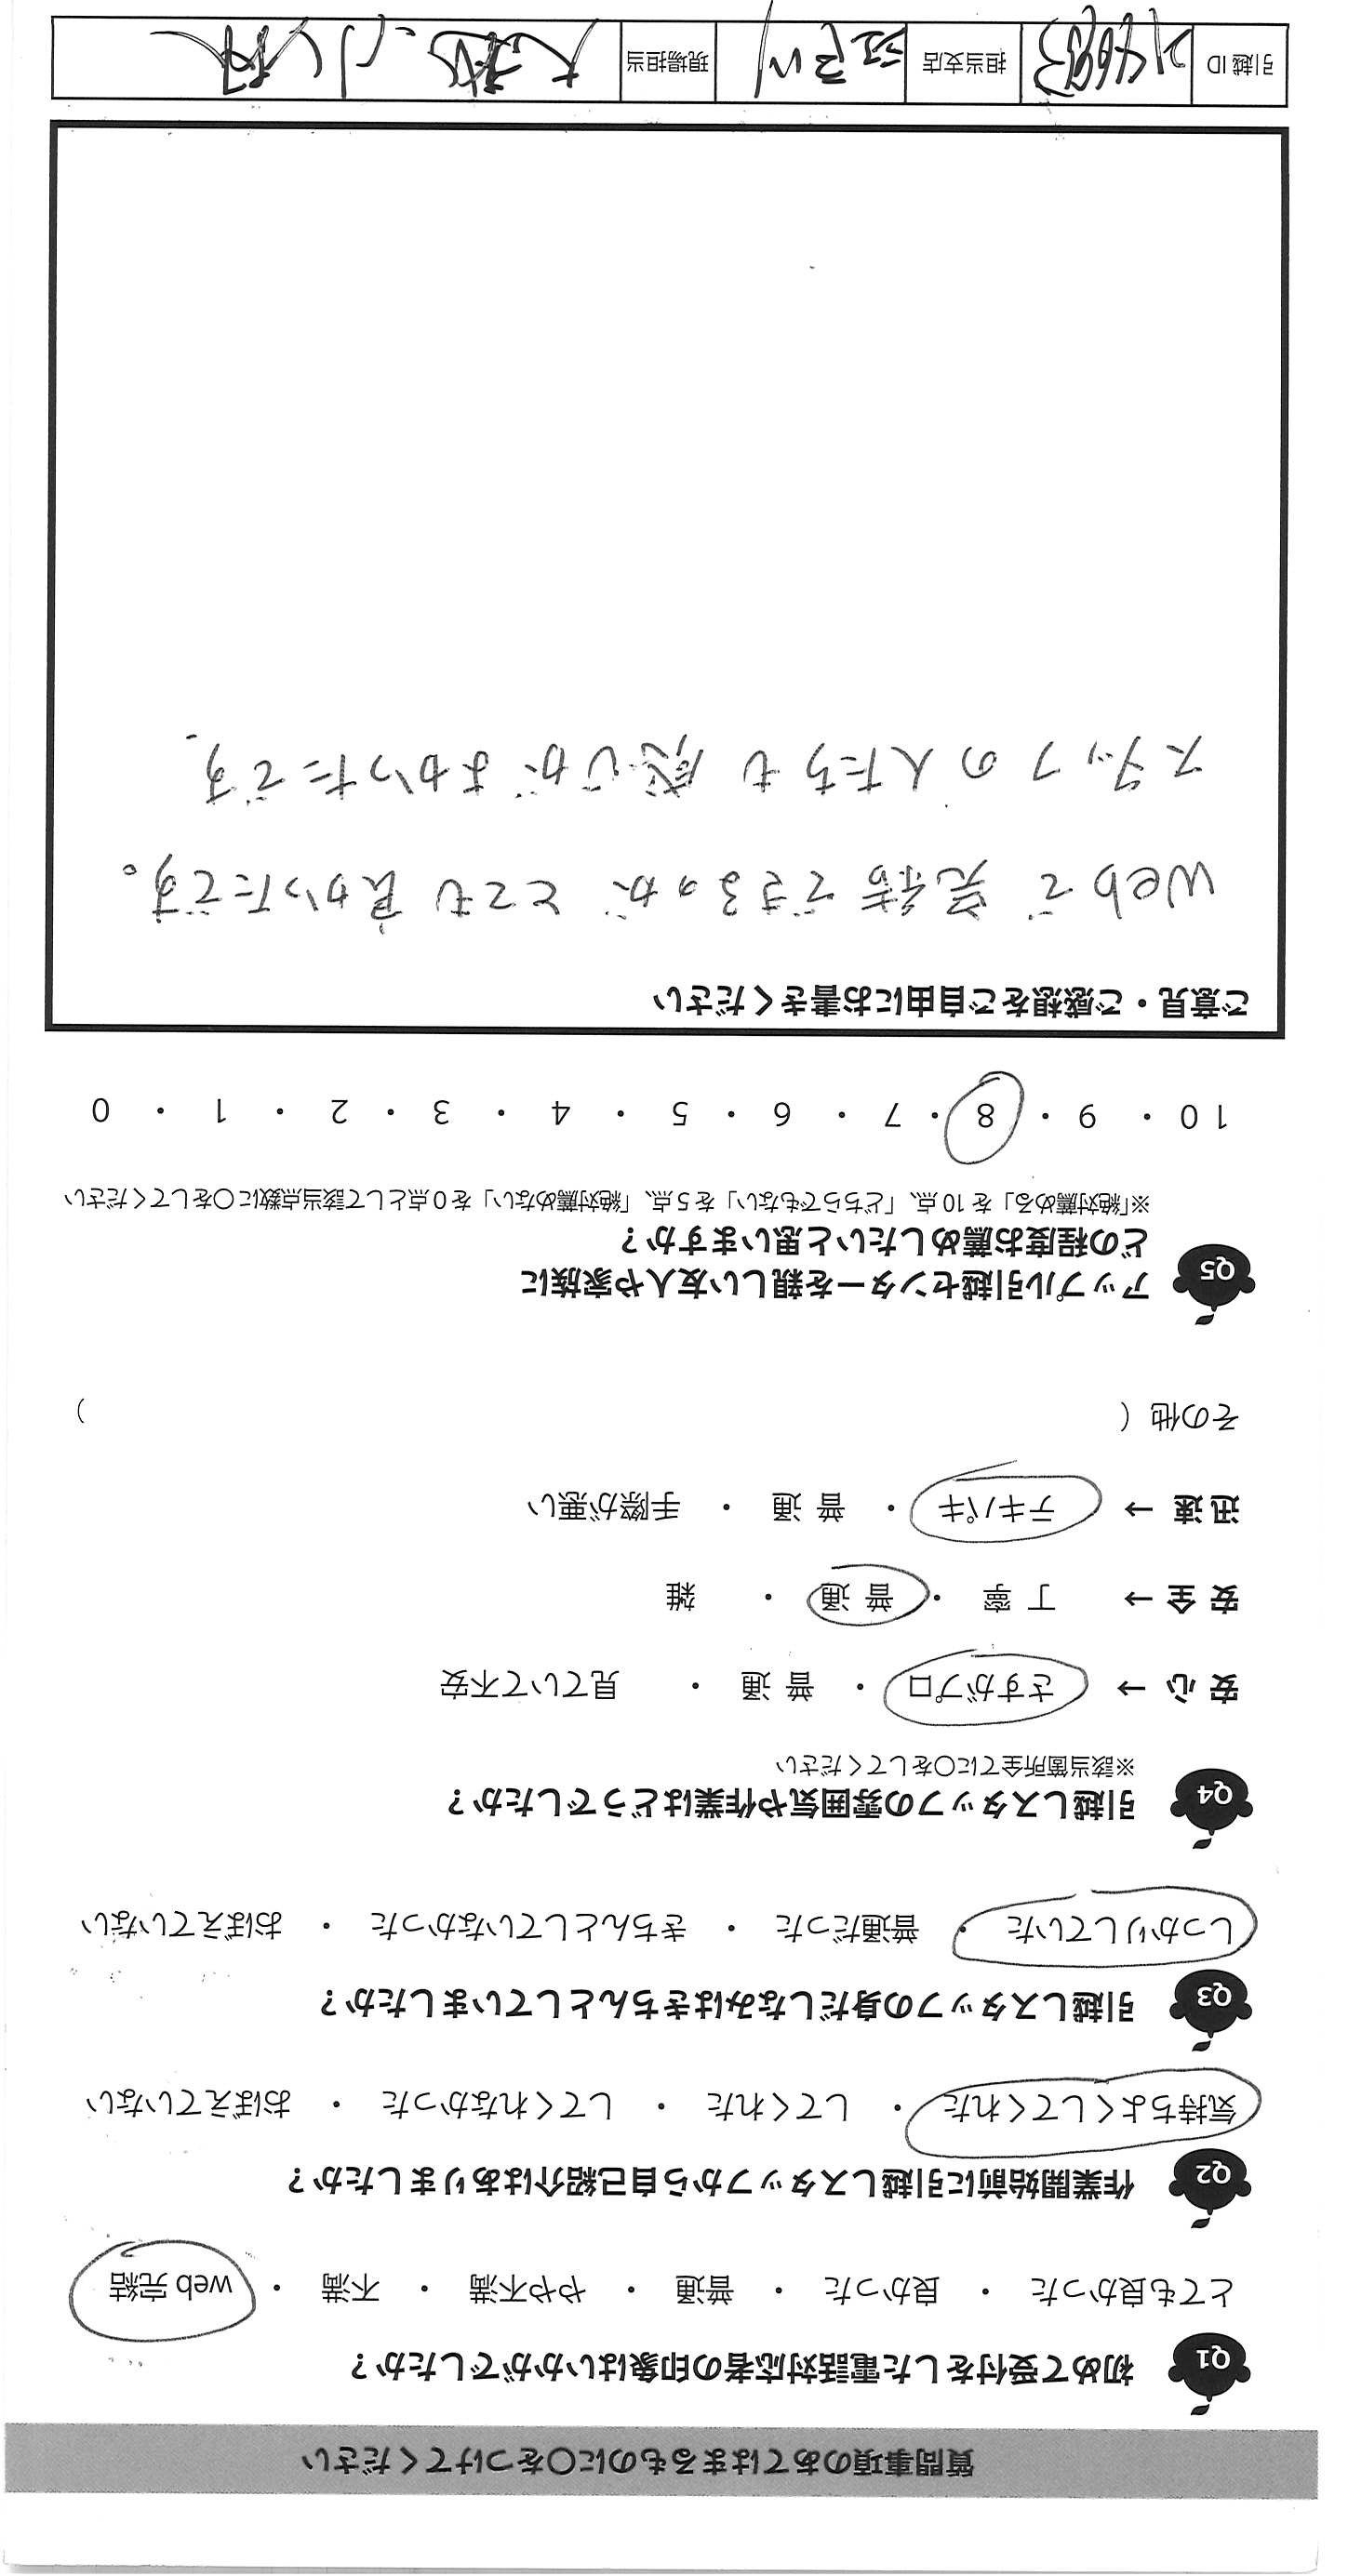 質問事項のあてはまるものに〇をつけてください
Q1 初めて受付をした電話対応者の印象はいかがでしたか？
とても良かった ・ 良かった ・ 普通 ・ やや不満 ・ 不満 ・ web 完結
Q2 作業開始前に引越しスタッフから自己紹介はありましたか？
気持ちよくしてくれた ・ してくれた ・ してくれなかった ・ おぼえていない
Q3 引越しスタッフの身だしなみはきちんとしていましたか？
しっかりしていた ・ 普通だった ・ きちんとしていなかった ・ おぼえていない
Q4 引越しスタッフの雰囲気や作業はどうでしたか？
※該当箇所全てに〇をしてください
安 心 → さすがプロ ・ 普 通 ・ 見ていて不安
安 全 → 丁 寧 ・ 普 通 ・ 雑
迅 速 → テキパキ ・ 普 通 ・ 手際が悪い
その他（ ）
Q5 アップル引越センターを親しい友人や家族に
どの程度お薦めしたいと思いますか？
※「絶対薦める」を 10 点、「どちらでもない」を 5 点、「絶対薦めない」を 0 点として該当点数に〇をしてください
10 ・ 9 ・ 8 ・ 7 ・ 6 ・ 5 ・ 4 ・ 3 ・ 2 ・ 1 ・ 0
ご意見・ご感想をご自由にお書きください
Webで 完結できるのが とても 良かったです。
スタッフの人たちも 感じが よかったです.
引越 ID 担当支店 江戸川 現場担当